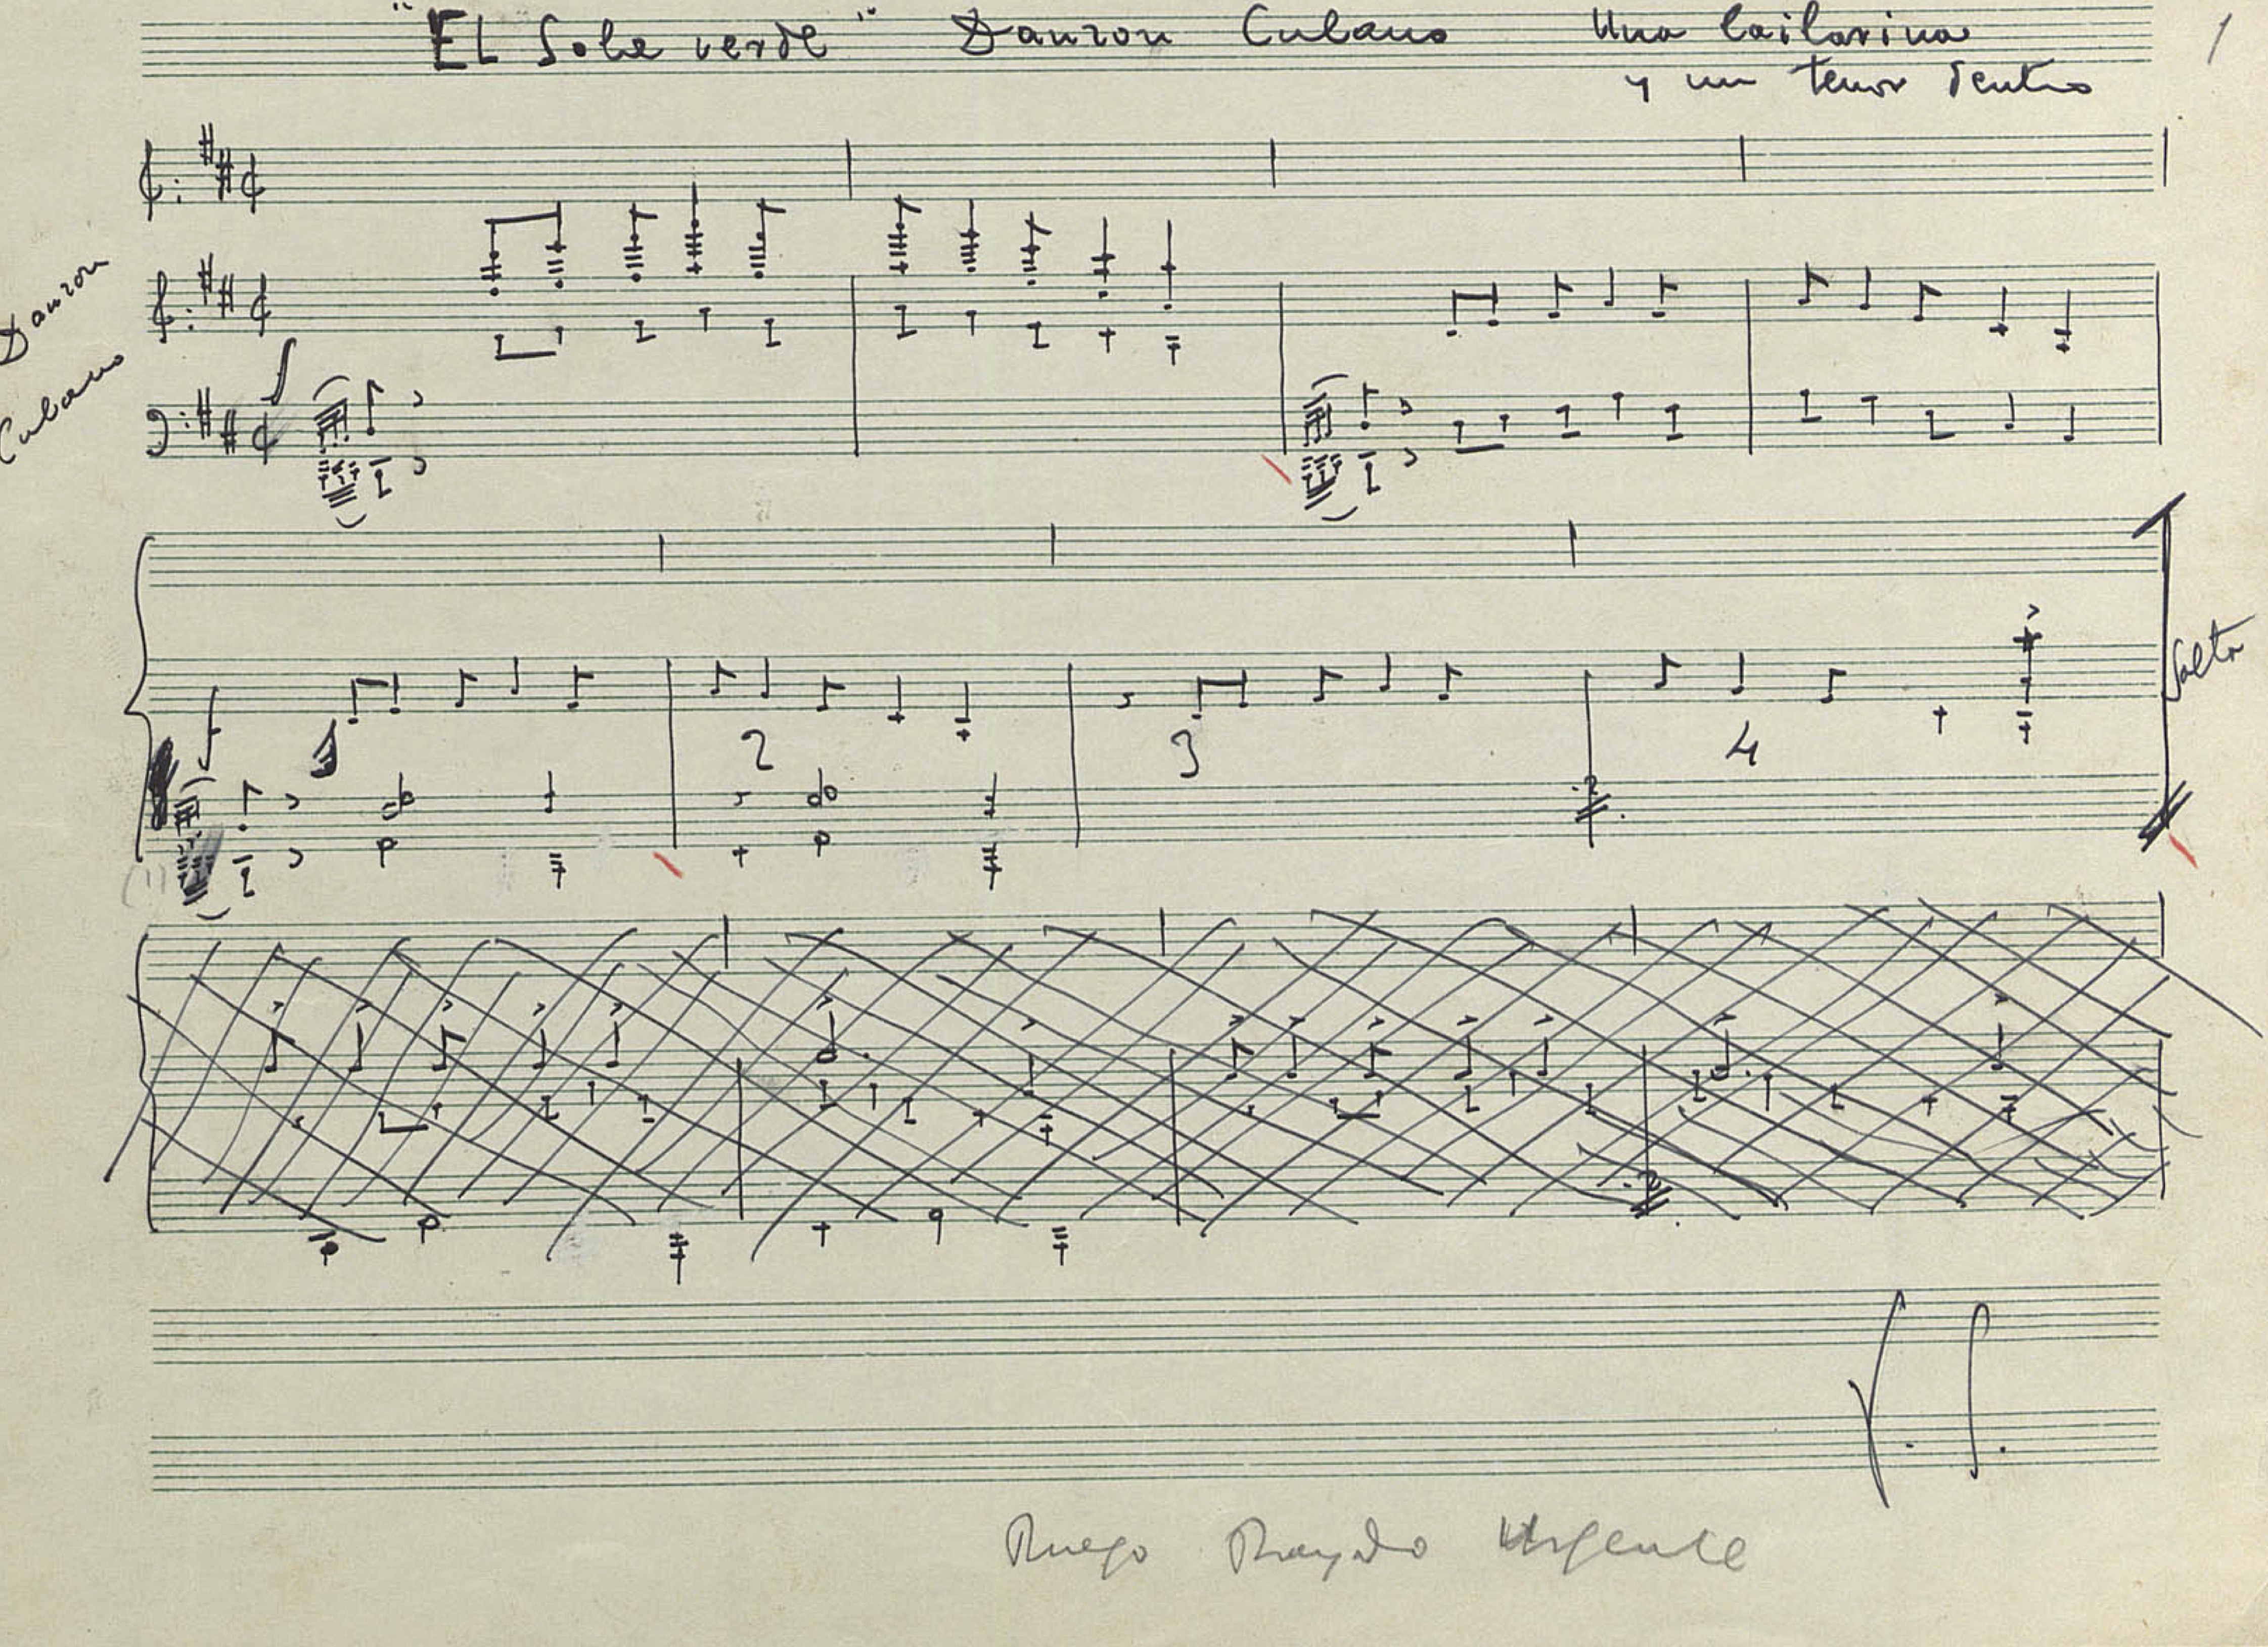 "EL Sobre verde" Danzon Cubano Una bailarina 1
y un tenor dentro
Danzon
Cubano
f
f
1 2 3 4
(1)
V. S.
Ruego Urgente